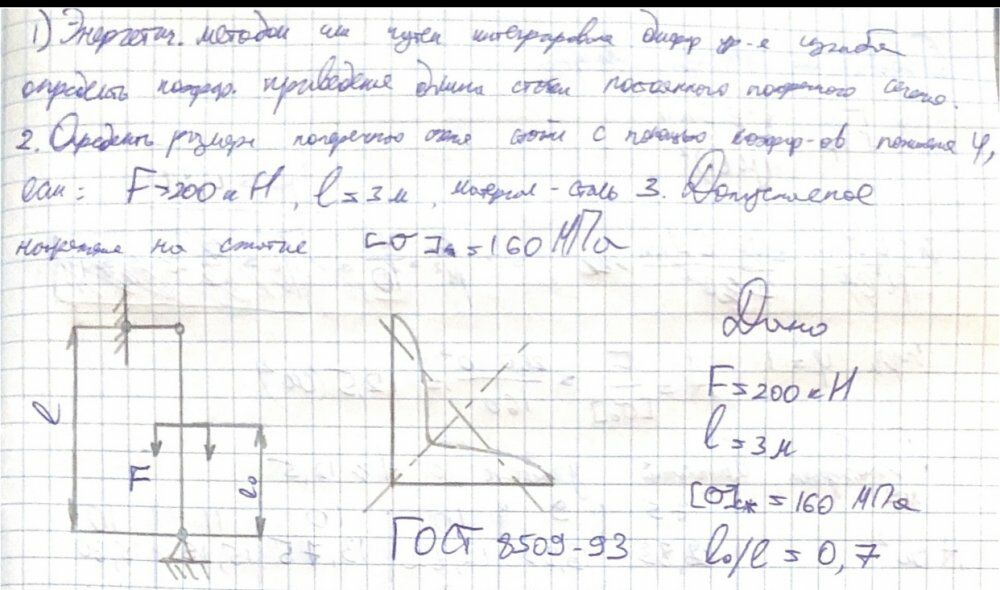 1) Энергетич. методом или путем интегрирования дифф ур-я изгиба
определить коэфф. приведения длины стойки постоянного поперечного сечения.
2. Определить размеры поперечного сечения стойки с помощью коэфф-ов понижения φ,
если: F=200 кН, l=3м, материал - сталь 3. Допускаемое
напряжение на сжатие [σ]сж=160 МПа
l
F
l₀
ГОСТ 8509-93
Дано
F=200 кН
l=3м
[σ]сж=160 МПа
l₀/l=0,7